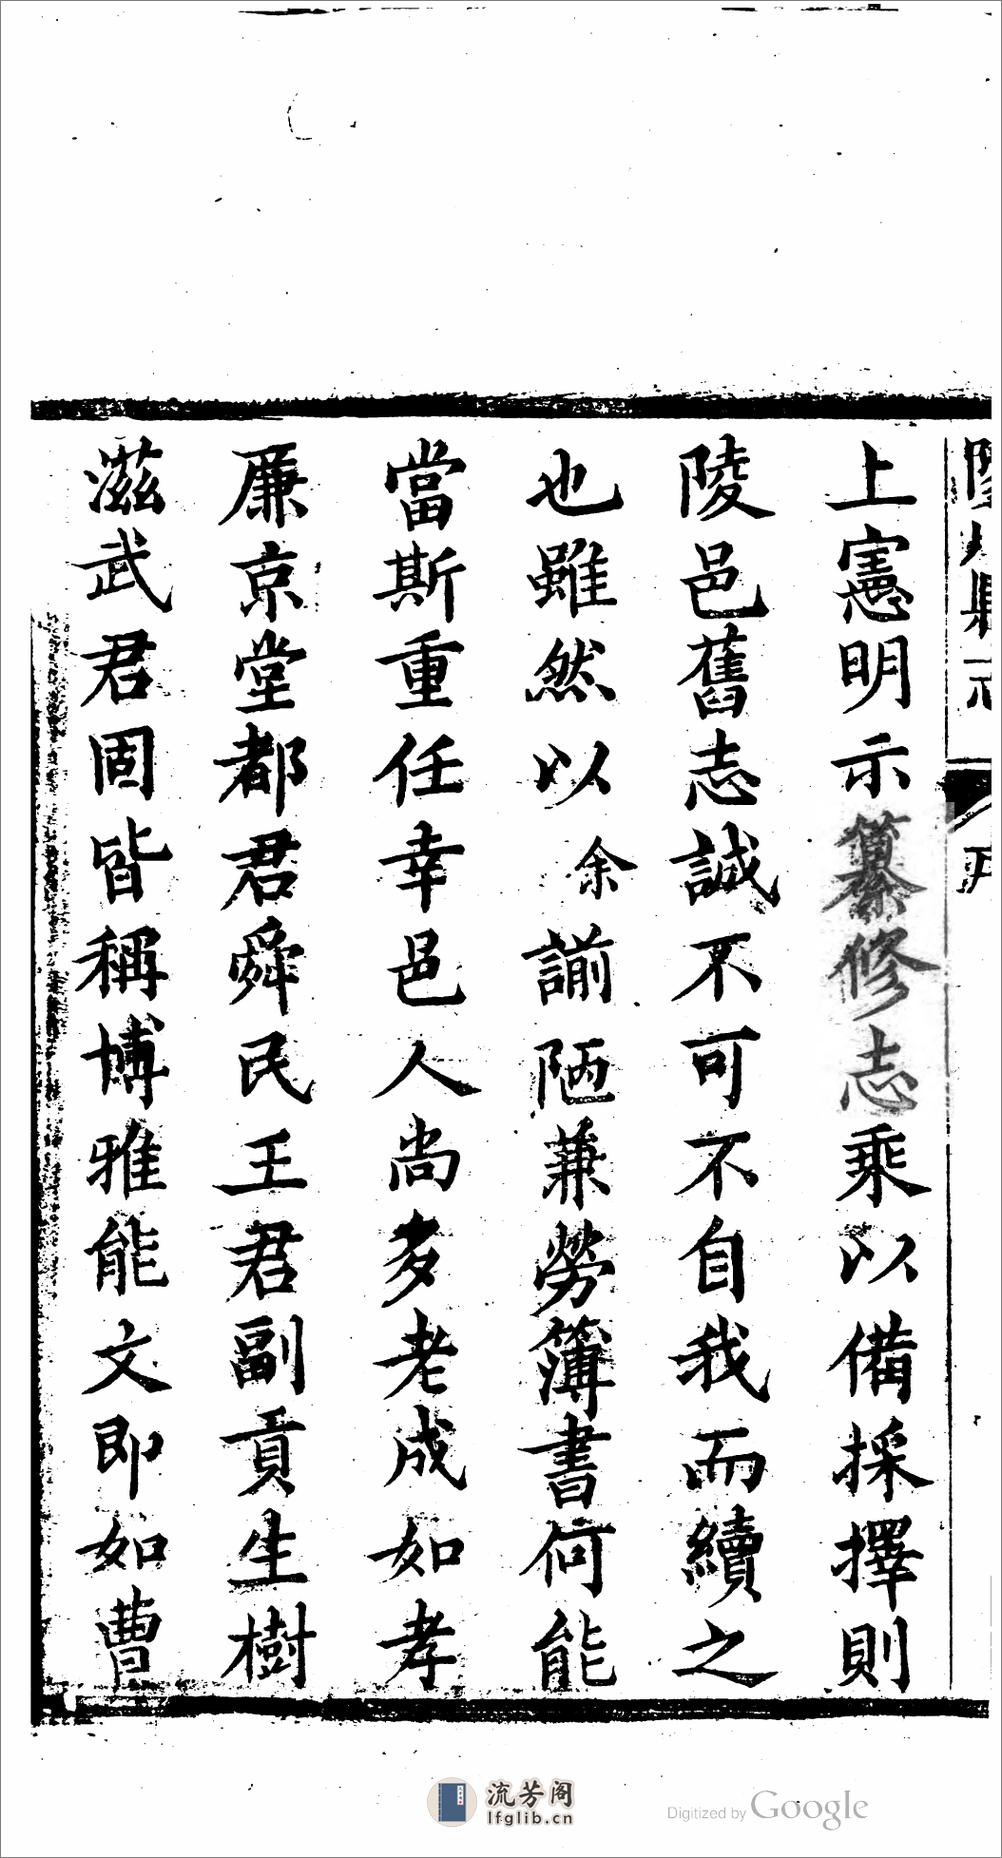 上憲明示纂修志乘以備採擇則
陵邑舊志誠不可不自我而續之
也雖然以余譾陋兼勞簿書何能
當斯重任幸邑人尚多老成如孝
廉京堂都君舜民王君副貢生樹
滋武君固皆稱博雅能文即如曹
流芳阁
lfglib.cn
Digitized by Google